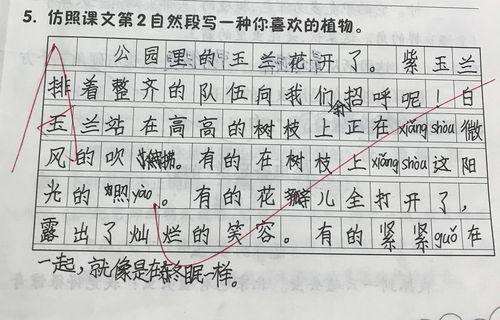 5. 仿照课文第2自然段写一种你喜欢的植物。
公园里的玉兰花开了。紫玉兰
排着整齐的队伍向我们招呼呢！白
玉兰站在高高的树枝上正在xiǎng shòu微
风的吹拂。有的在树枝上xiǎng shòu这阳
光的照yào。有的花瓣儿全打开了，
露出了灿烂的笑容。有的紧紧guǒ在
一起，就像是在眠一样。